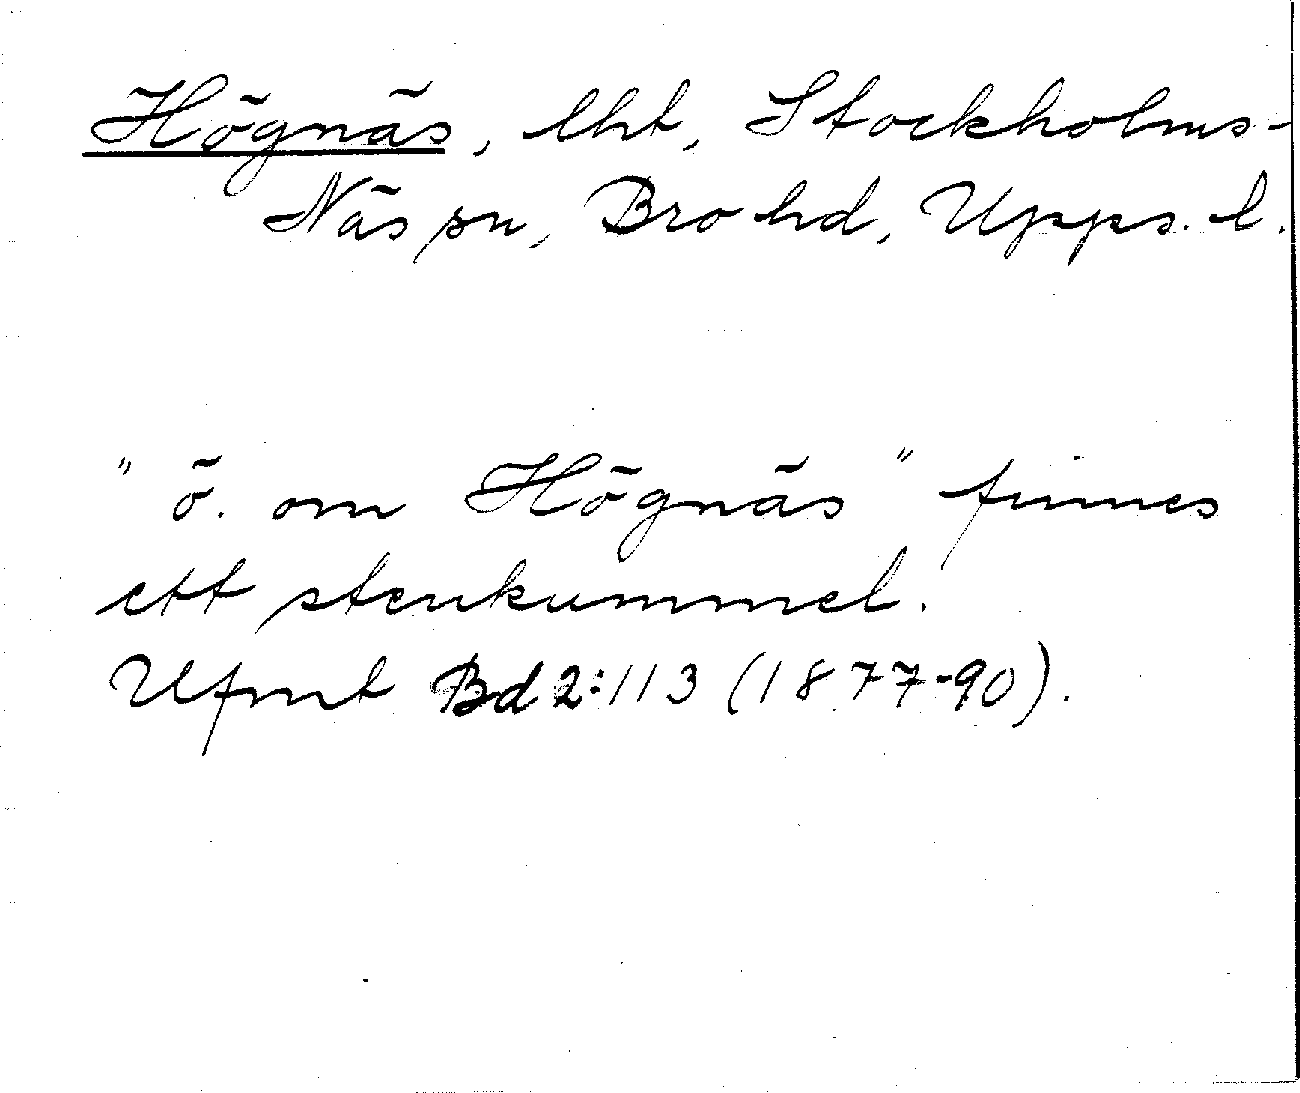 Högnäs, lht, Stockholms-
Näs sn, Bro hd, Upps. l.
" ö. om Högnäs " finnes
ett stenkummel.
Ufmt Bd 2:113 (1877-90).